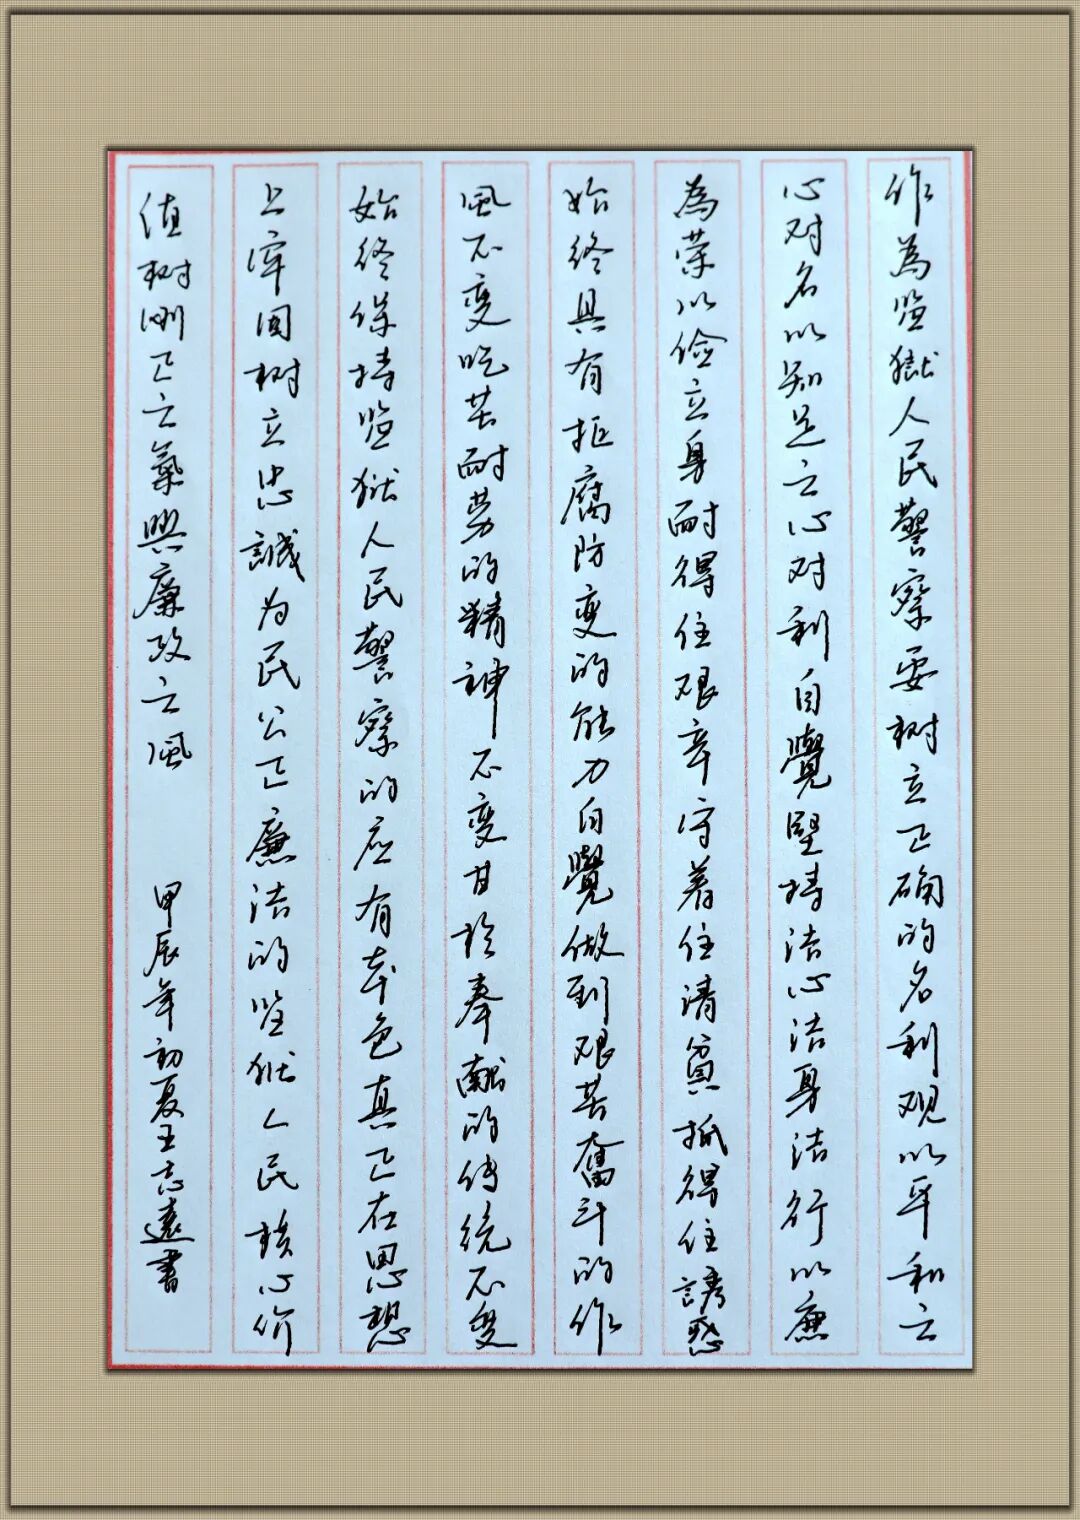 作為监獄人民警察要树立正确的名利观以平和之
心对名以知足之心对利自覺坚持洁心洁身洁行以廉
為荣以俭立身耐得住艰辛守着住清貧抵得住誘惑
始终具有拒腐防变的能力自覺做到艰苦奮斗的作
風不变吃苦耐劳的精神不变甘於奉献的传统不变
始终保持监狱人民警察的应有本色真正在思想
上牢固树立忠誠为民公正廉洁的监狱人民核心价
值树刚正之氣興廉政之風
甲辰年初夏王志遠書